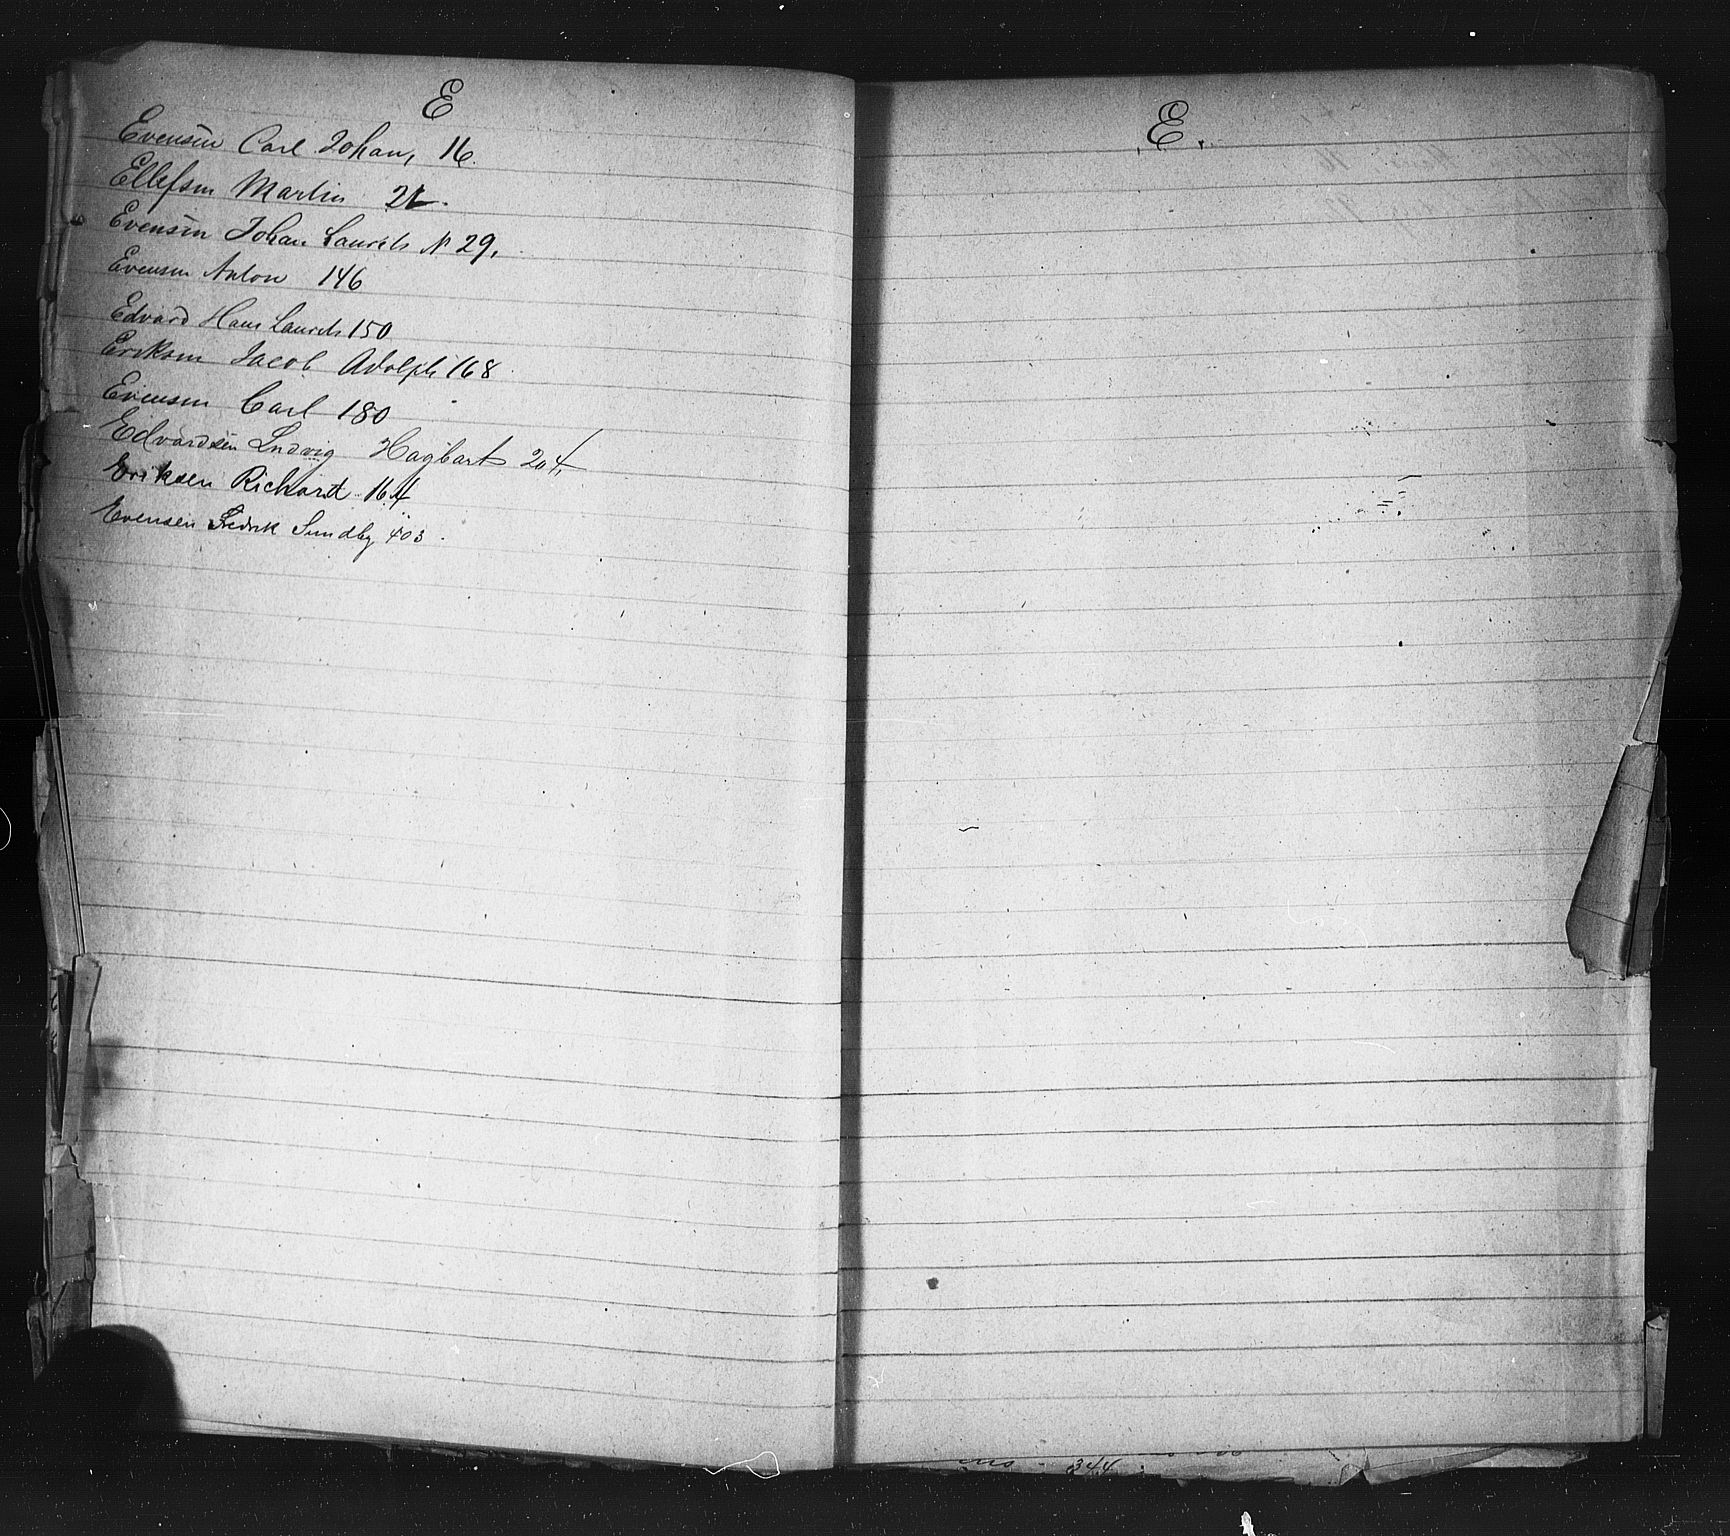 E
Evensen Carl Johan, 16.
Ellefsen Martin 21.
Evensen Johan Laurits N 29,
Evensen Anton 146
Edvard Hans Laurits 150
Eriksen Jacob Adolph 168.
Evensen Carl 180
Edvardsen Ludvig Hagbart 204,
Eriksen Richard 164
Evensen Fredrik Sundby 403.
E.
344